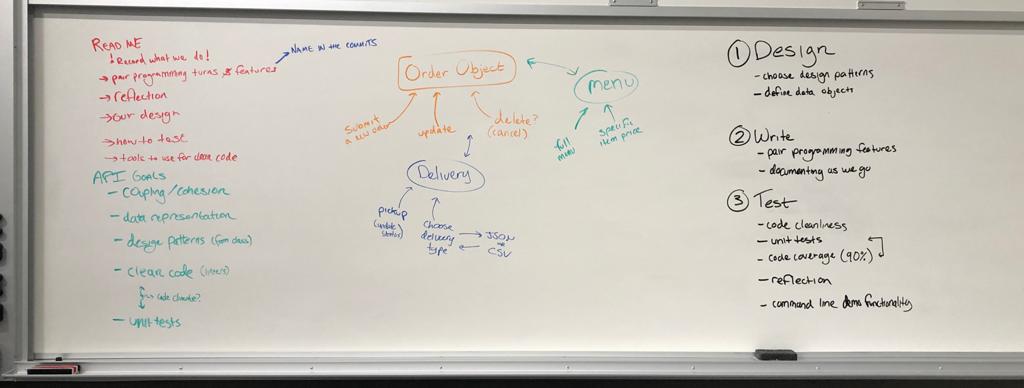 READ ME
! Record what we do!
→ pair programming turns & features
NAME IN THE COMMITS
→ reflection
→ our design
→ how to test
→ tools to use for clean code
API GOALS
- coupling/cohesion
- data representation
- design patterns (from class)
- clean code (linters)
→ code climate?
- unit tests
Order Object
submit
a new order
update
delete?
(cancel)
menu
full
menu
specific
item price
Delivery
pickup
(update
status)
choose
delivery
type
JSON
CSV
① Design
- choose design patterns
- define data objects
② Write
- pair programming features
- documenting as we go
③ Test
- code cleanliness
- unit tests
- code coverage (90%)
- reflection
- command line demo functionality